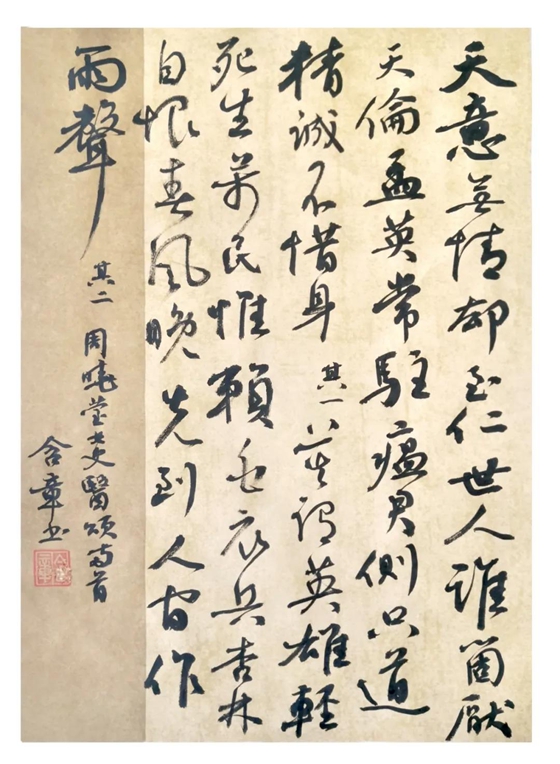 天意無情却至仁世人誰箇厭
天倫孟英常駐瘟君側只道
精誠不惜身 其一 莫謂英雄輕
死生萬民惟賴白衣兵杏林
自恨春風晚先到人間作
雨聲 其二 周曉莹女史醫頌两首
含章书